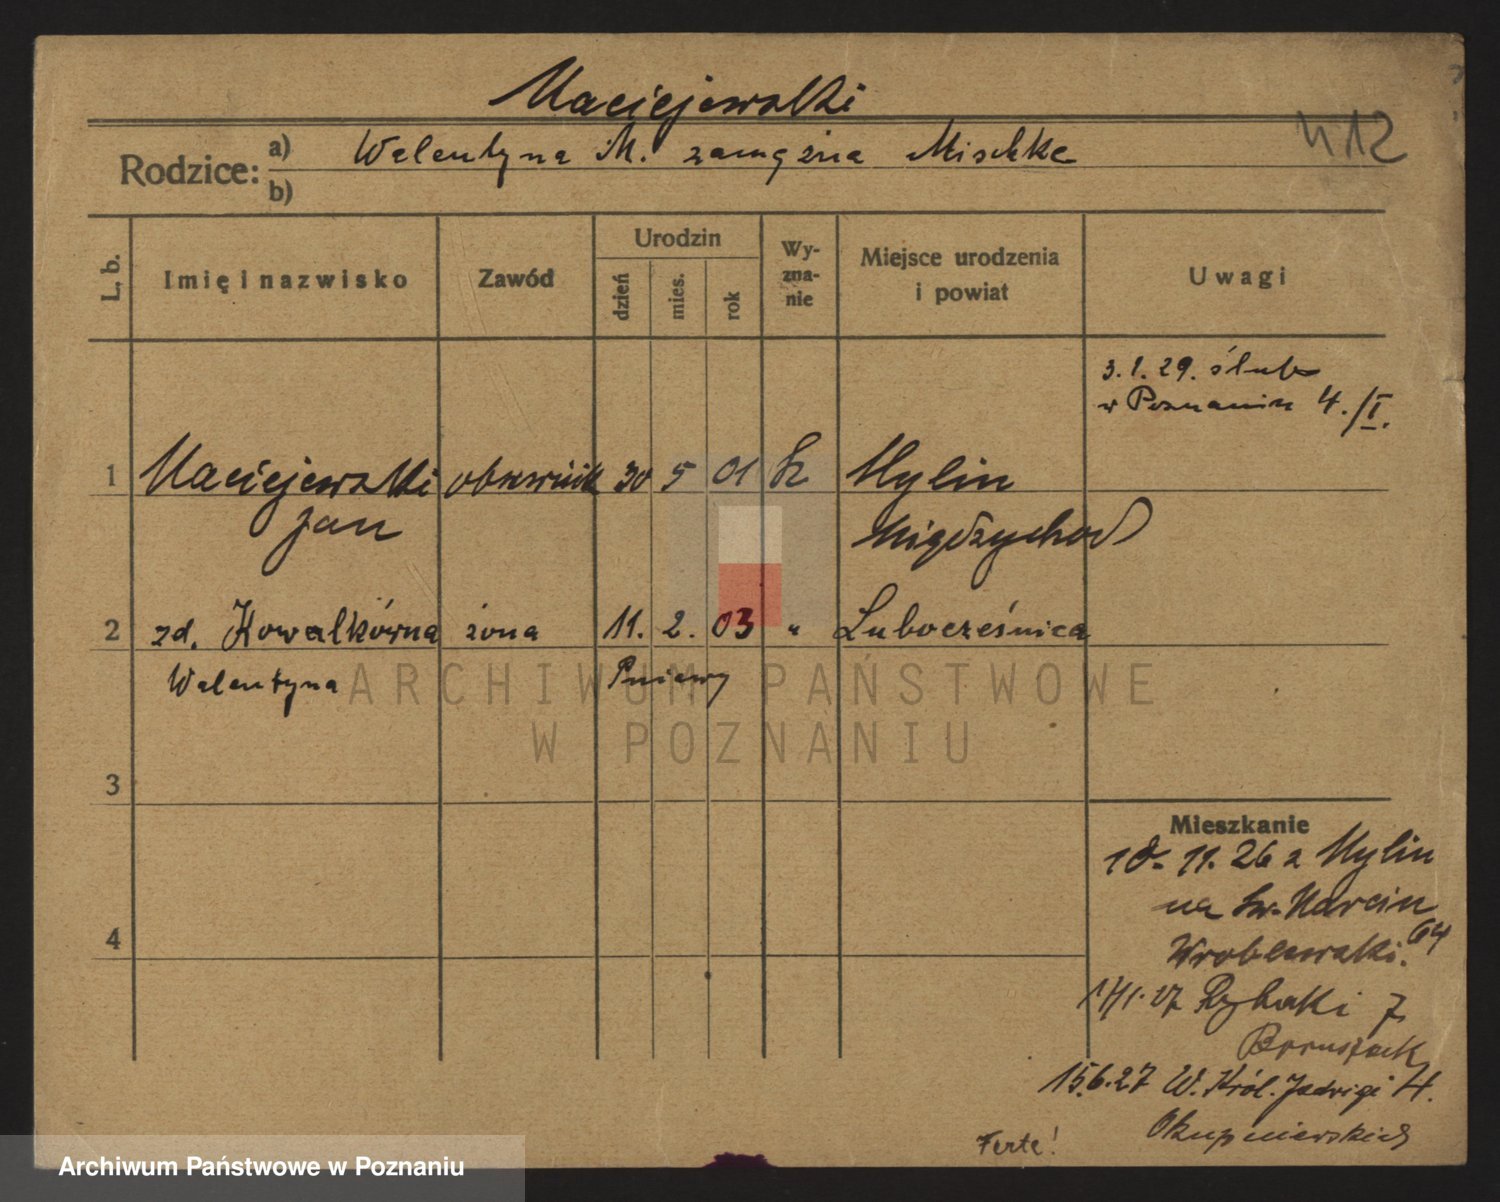 Maciejewski
412
Rodzice: a) Walentyna M. zamężna Mischke
b)
L. b. Imię i nazwisko Zawód Urodzin dzień mies. rok Wy-zna-nie Miejsce urodzenia i powiat Uwagi
3.1.29. ślub
w Poznaniu 4./I.
1 Maciejewski 30 5 01 k Mylin
Jan Międzychod
2 zd. Kowalkówna żona 11. 2. 03 " Lubocześnica
Walentyna Pniewy
ARCHIWUM PAŃSTWOWE
W POZNANIU
3
4
Mieszkanie
10. 11. 26 z Mylin
na św. Marcin 64
Wroblewski.
17/1.27 Rybaki 7
15.6.27 W. Król. Jadwigi 4.
Ferte!
Archiwum Państwowe w Poznaniu